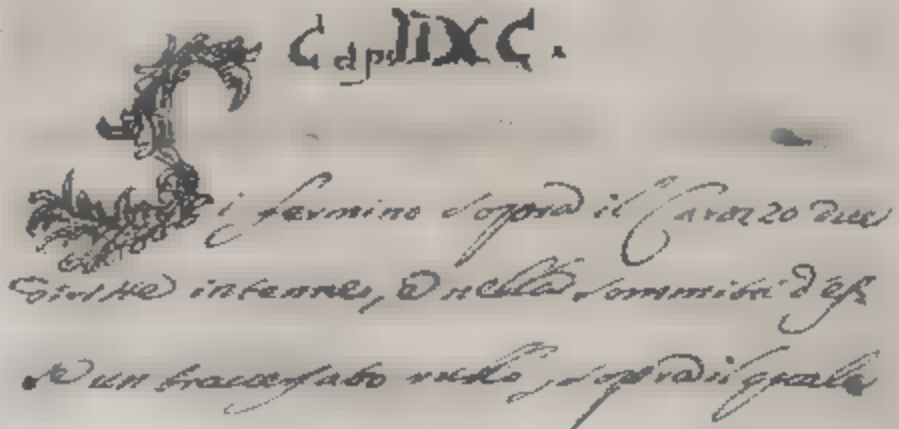 Cap. IIXC.
Si fermino sopra il Carozzo due
intenne, e nella sommità d'ess
e un braccio nudo, sopra il quale